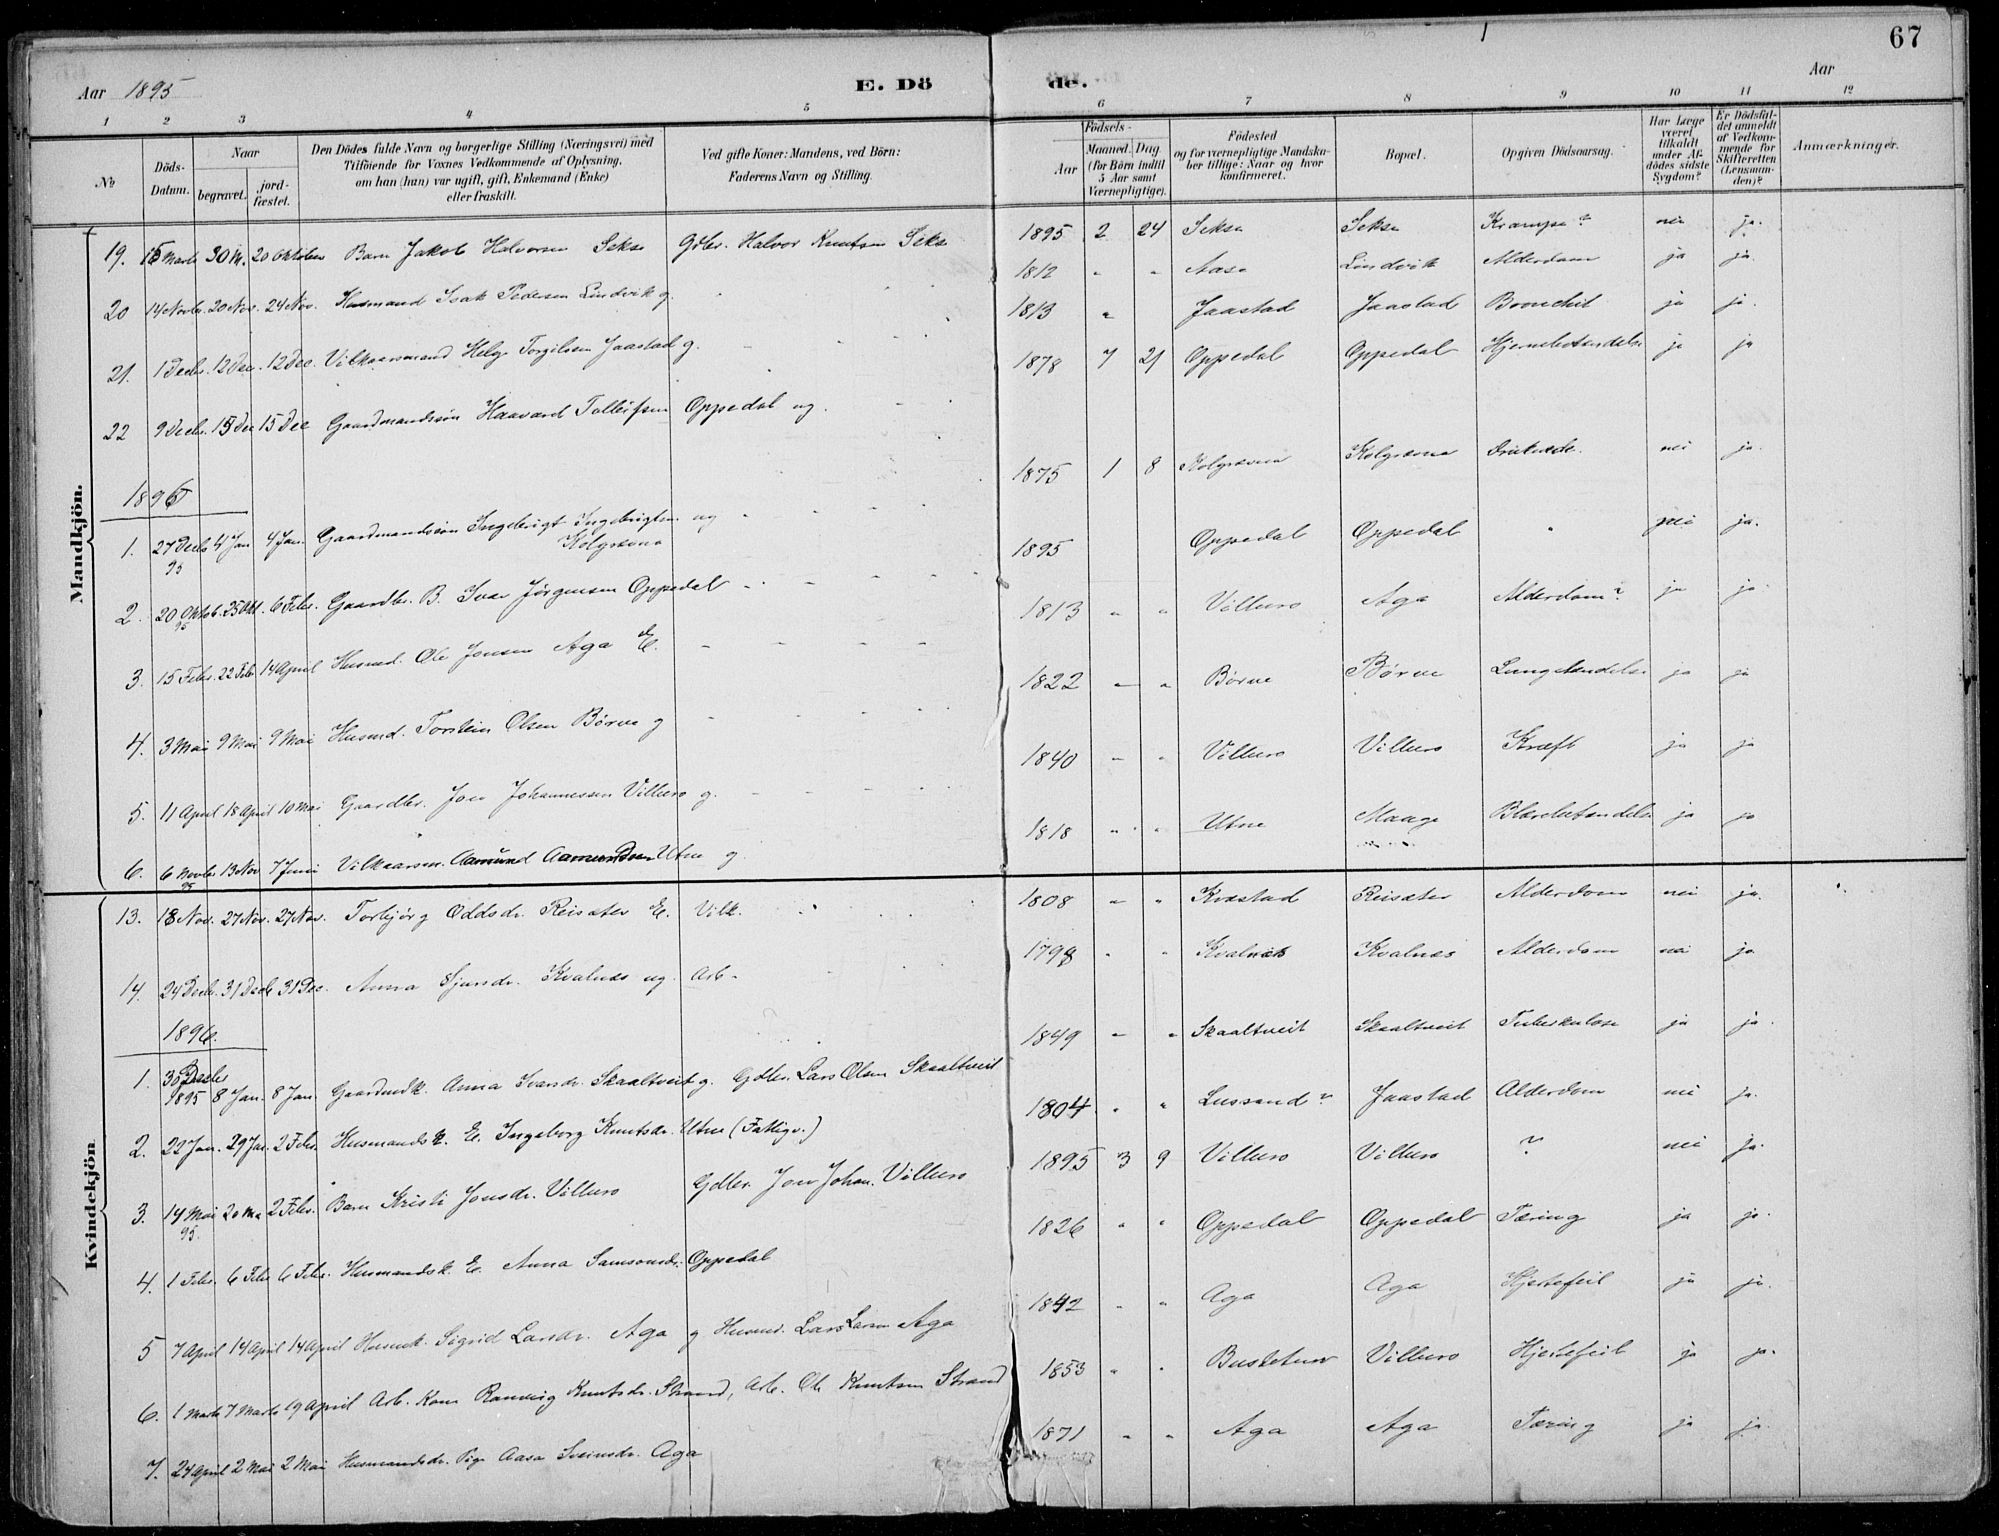 67
Aar 1895 E. Dö de. Aar
1 2 3 4 5 6 7 8 9 10 11 12
No
Döds-Datum.
Naar
begravet.
jord-fæstet.
Den Dödes fulde Navn og borgerlige Stilling (Næringsvei) med
Tilföiende for Voxnes Vedkommende af Oplysning,
om han (hun) var ugift, gift, Enkemand (Enke)
eller fraskilt.
Ved gifte Koner: Mandens, ved Börn:
Faderens Navn og Stilling.
Födsels-
Aar
Maaned. Dag
(for Börn indtil
5 Aar samt
Værnepligtige).
Födested
og for værnepligtige Mandska-
ber tillige: Naar og hvor
konfirmeret.
Bopæl.
Opgiven Dödsaarsag.
Har Læge
været
tilkaldt
under Af-
dödes sidste
Sygdom?
Er Dödsfal-
det anmeldt
af Vedkom-
mende for
Skifteretten
(Lensman-
den)?
Anmærkninger.
Mandkjön.
19. 15 Marts 30 M. 20 Oktober Barn Jakob Halvorsen Sekse Gdbr. Halvor Knutsen Sekse 1895 2 24 Sekse Sekse Krampe? nei ja.
20 14 Novbr. 20 Nov. 24 Nov. Husmand Isak Pedersen Lindvik g. 1812 " " Aase Lindvik Alderdom ja ja.
21. 1 Decbr. 12 Dec. 12 Dec. Vilkaarsmand Helge Torgilsen Jaastad g. 1813 " Jaastad Jaastad Bronchit ja ja.
22 9 Decbr. 15 Dec 15 Dec Gaardmandssøn Haavard Tollefsen Oppedal ug. 1878 7 21 Oppedal Oppedal Hjernebetændelse ja ja
1896
1. 27 Decbr 95 4 Jan 4 Jan. Gaardmandssøn Ingebrigt Ingebrigtsen ug
Kolgræna 1875 1 8 Kolgræna Kolgræna Druknede. nei ja.
2. 20 Oktob. 95 25 Okt. 6 Febr. Gaardbr. B. Ivar Jørgensen Oppedal 1895 Oppedal Oppedal " nei ja.
3. 15 Febr. 22 Febr 14 April Husmd. Ole Jonsen Aga E. 1813 " " Villuro Aga Alderdom? ja ja.
4. 3 Mai 9 Mai 9 Mai Husmd. Torstein Olsen Børve g 1822 " " Børve Børve Lungebetændelse ja ja
5. 11 April 18 April 10 Mai Gaardbr. Jon Johannessen Villuro g. 1840 " " Villuro Villuro Kræft ja ja
6. 6 Novbr 95 13 Nov 7 Juni Vilkaarsm. Aamund Aamundsen Utne g 1818 " " Utne Maage Blærebetændelse ja ja
Kvindekjön
13. 18 Nov. 27 Nov. 27 Nov. Torbjørg Oddsdr. Reisæter E. Vilk. 1808 " " Kvæstad Reisæter Alderdom nei ja.
14. 24 Decbr. 31 Decbr 31 Dec. Anna Sjursdr. Kvalnæs ug. Arb. 1798 " " Kvalnæs Kvalnæs Alderdom nei ja
1896.
1. 30 Decbr 1895 8 Jan. 8 Jan. Gaardmdk. Anna Ivarsdr. Skaaltveit g. Gdbr. Lars Olsen Skaaltveit 1849 " " Skaaltveit Skaaltveit Tuberkulose ja ja.
2. 22 Jan. 29 Jan. 2 Febr. Husmandsk. E. Ingeborg Knutsdr. Utne (Fattigv.) 1804. " " Lussand? Jaastad Alderdom nei ja.
3. 14 Mai 95. 20 Ma 2 Febr. Barn Kristi Jonsdr. Villuro Gdbr. Jon Johan. Villuro 1895 3 9 Villuro Villuro ? nei ja.
4. 1 Febr. 6 Febr 6 Febr. Husmandsk. E. Anna Samsonsdr. Oppedal 1826 " " Oppedal Oppedal Tæring ja ja.
5 7 April 14 April 14 April Husmk. Sigrid Larsdr. Aga g Husmd. Lars Larsen Aga 1842 " " Aga Aga Hjertefeil ja ja.
6. 1 Marts 7 Marts 19 April Arb. Kone Ranveig Knutsdr. Strand, Arb. Ole Knutsen Strand 1853 " " Bustetun Villuro Hjertefeil ja ja.
7. 24 April 2 Mai 2 Mai Husmandsdr. Pige Aasa Sveinsdr. Aga 1871 " " Aga Aga Tæring ja ja.